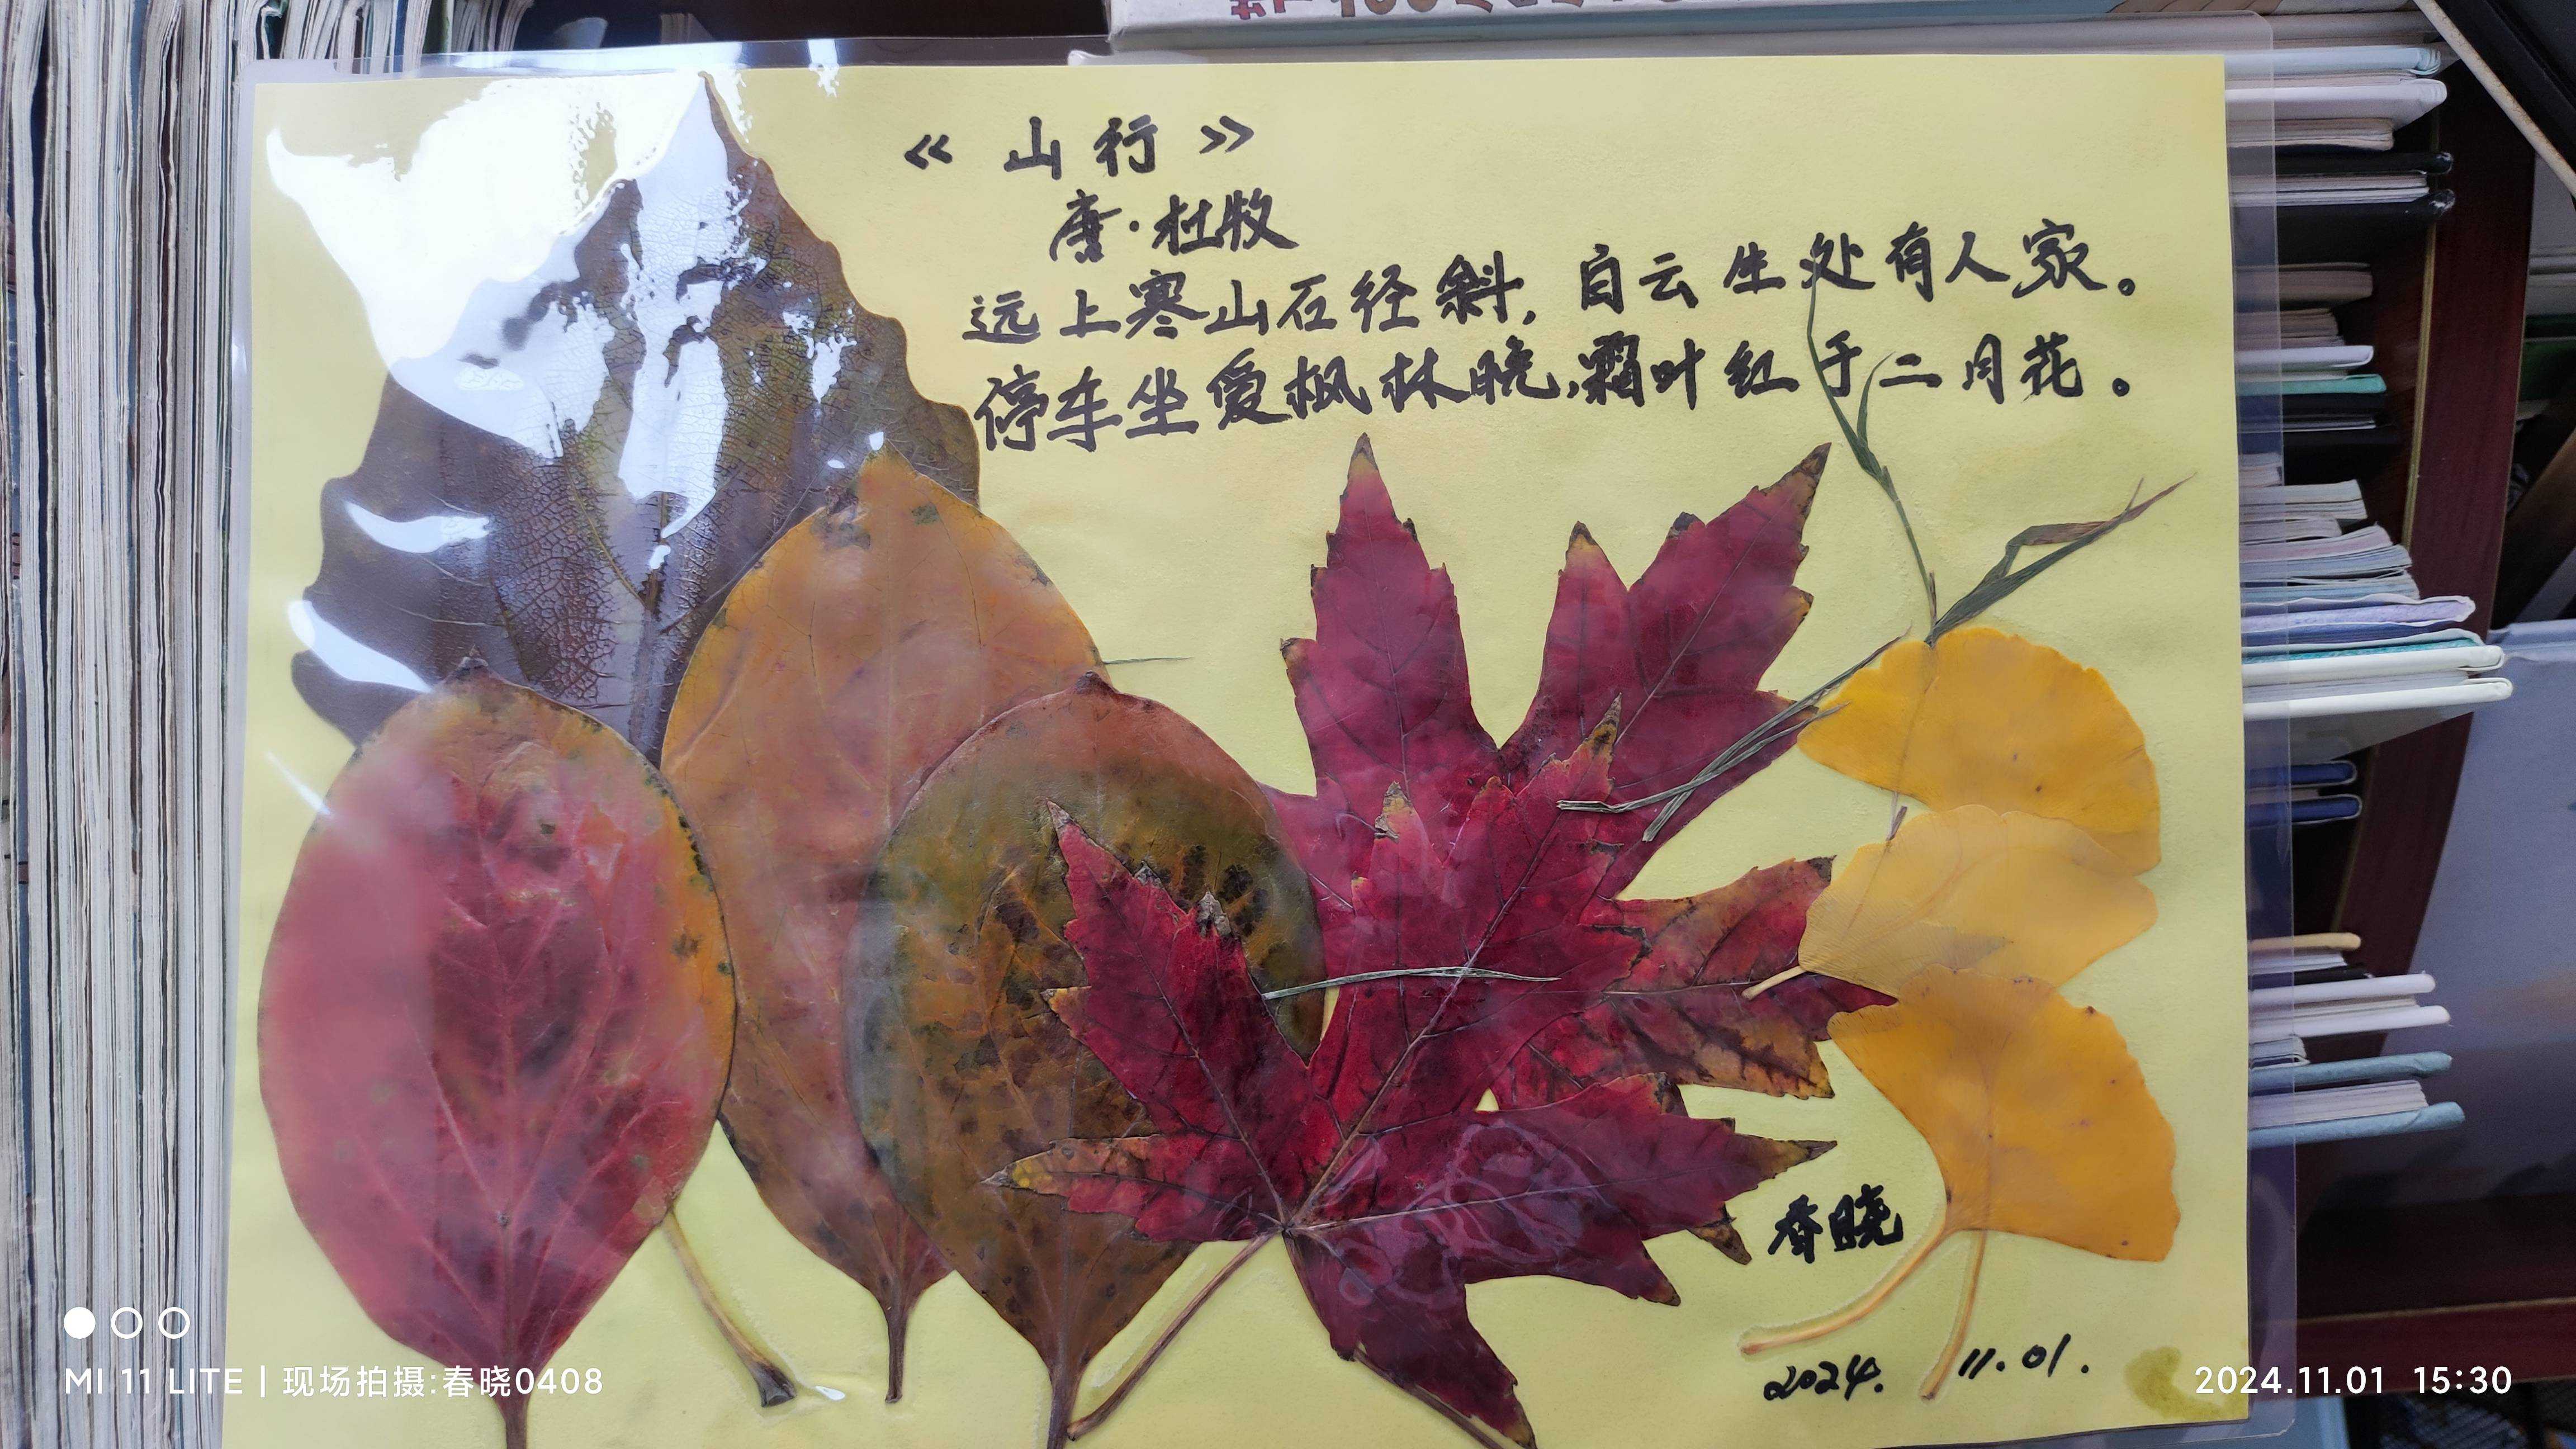 《山行》
唐·杜牧
远上寒山石径斜,白云生处有人家。
停车坐爱枫林晚,霜叶红于二月花。
春晓
2024.11.01.
MI 11 LITE | 现场拍摄:春晓0408
2024.11.01 15:30